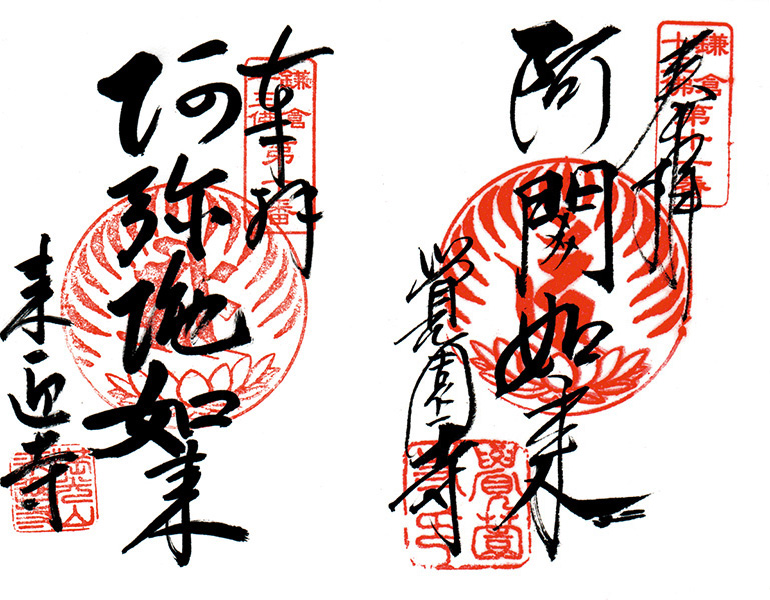 奉拝
鎌倉
十三佛
第十一番
阿閦如来
覺園寺
奉拝
鎌倉
三佛
第
番
阿弥陀如来
来迎寺